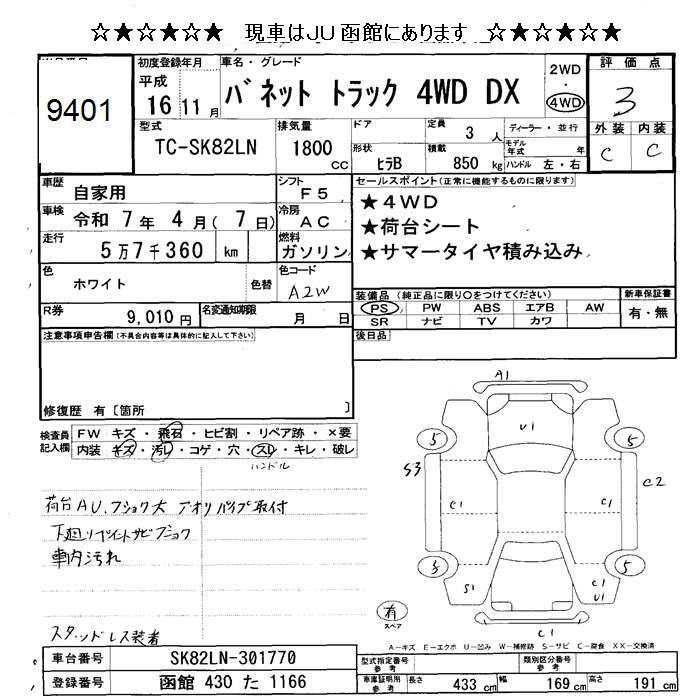 ☆★☆★☆★☆ 現車はJU函館にあります ☆★☆★☆★☆
9401
初度登録年月
平成
16 年 11月
車名・グレード
バネット トラック 4WD DX
2WD
・
4WD
評価点
3
外装 内装
C C
型式
TC-SK82LN
排気量
1800 CC
ドア
形状
ヒラB
定員
3 人
積載
850 kg
ディーラー・並行
モデル年式 年
ハンドル 左・右
車歴
自家用
シフト
F5
車検
令和 7年 4月 ( 7 日)
冷房
AC
走行
5万7千360 km
燃料
ガソリン
セールスポイント(正常に機能するものに限ります)
★4WD
★荷台シート
★サマータイヤ積み込み
色
ホワイト
色替
色コード
A2W
R券
9,010円
名変通知期限
月 日
装備品 (純正品に限り○をつけてください)
PS PW ABS エアB AW
SR ナビ TV カワ
新車保証書
有・無
後日品
注意事項申告欄(不具合内容等は具体的に記入して下さい)
修復歴 有〔箇所 〕
検査員記入欄
FW キズ・飛石・ヒビ割・リペア跡・×要
内装 キズ・汚れ・コゲ・穴・スレ・キレ・破レ
ハンドル
荷台AU、フショク大 アオリパイプ取付
下廻リペイントサビフショク
車内汚れ
スタッドレス装着
A1
U1
5 5
S3 C2
C1 C1
5
S1
C1
U1
有
スペア
C1
A−キズ E−エクボ U−凹み W−補修跡 S−サビ C−腐食 XX−交換済
車台番号
SK82LN-301770
登録番号
函館 430 た 1166
型式指定番号
参考
類別区分番号
参考
車庫証明用
参考
長さ 433 cm 幅 169 cm 高さ 191 cm